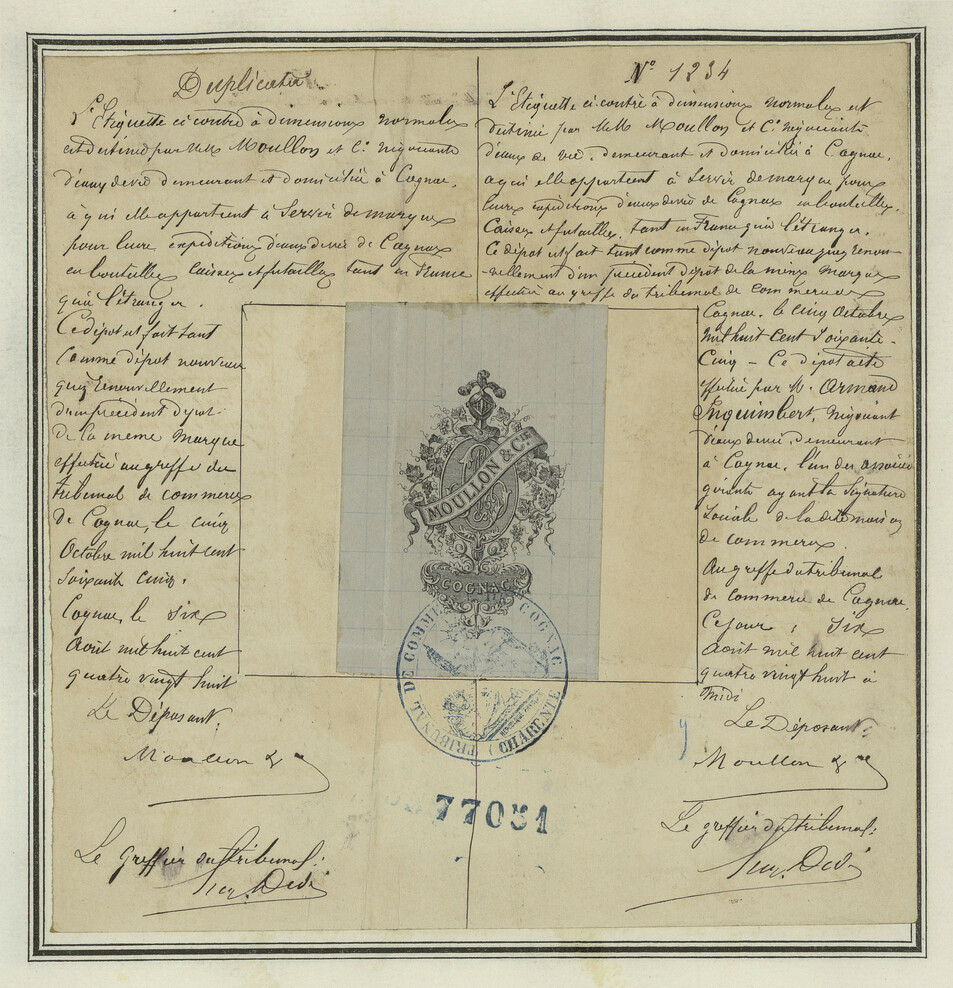 Duplicata
L'Etiquette ci contre à dimensions normales
est destinée par MM. Moullon et Cie. Négociants
d'eaux de vie demeurant et domiciliés à Cognac,
à qui elle appartient à servir de marque
pour leurs expéditions d'eaux de vie de Cognac
en bouteilles, caisses et futailles tant en France
qu'à l'étranger.
Ce dépôt est fait tant
comme dépôt nouveau
que renouvellement
d'un précédent dépôt
de la même marque
effectué au greffe du
tribunal de commerce
de Cognac, le cinq
Octobre mil huit cent
soixante cinq.
Cognac, le six
Août mil huit cent
quatre vingt huit
Le Déposant,
Moullon &
Le greffier du tribunal:
N° 1234
L'Etiquette ci-contre à dimensions normales est
destinée par MM. Moullon et Cie. Négociants
d'eaux de vie, demeurant et domiciliés à Cognac,
à qui elle appartient à servir de marque pour
leurs expéditions d'eaux de vie de Cognac en bouteilles,
caisses et futailles, tant en France qu'à l'étranger.
Ce dépôt est fait tant comme dépôt nouveau que renou-
-vellement d'un précédent dépôt de la même marque
effectué au greffe du tribunal de commerce de
Cognac, le cinq Octobre
mil huit cent soixante-
cinq – Ce dépôt a été
effectué par M. Armand
Inquimbert, Négociant
d'eaux de vie, demeurant
à Cognac, l'un des associés
gérants ayant la signature
sociale de la dite maison
de commerce.
Au greffe du tribunal
de commerce de Cognac,
Ce jour, six
Août mil huit cent
quatre vingt huit à
midi
Le Déposant:
Moullon &
Le greffier du tribunal:
MOULLON & CIE
COGNAC
TRIBUNAL DE COMMERCE COGNAC (CHARENTE)
77051